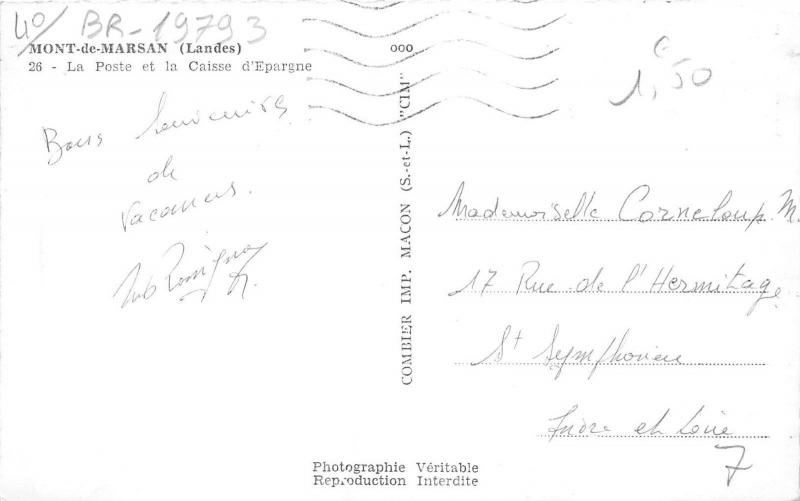 40/ BR-19793
MONT-de-MARSAN (Landes)
26 - La Poste et la Caisse d'Epargne
ooo
1,50
Bons Souvenirs
de
Vacances.
COMBIER IMP. MACON (S.-et-L.) "CIM"
Mademoiselle Corneloup M.
17 Rue de l'Hermitage
St Symphorien
Indre et Loire
7
Photographie Véritable
Reproduction Interdite